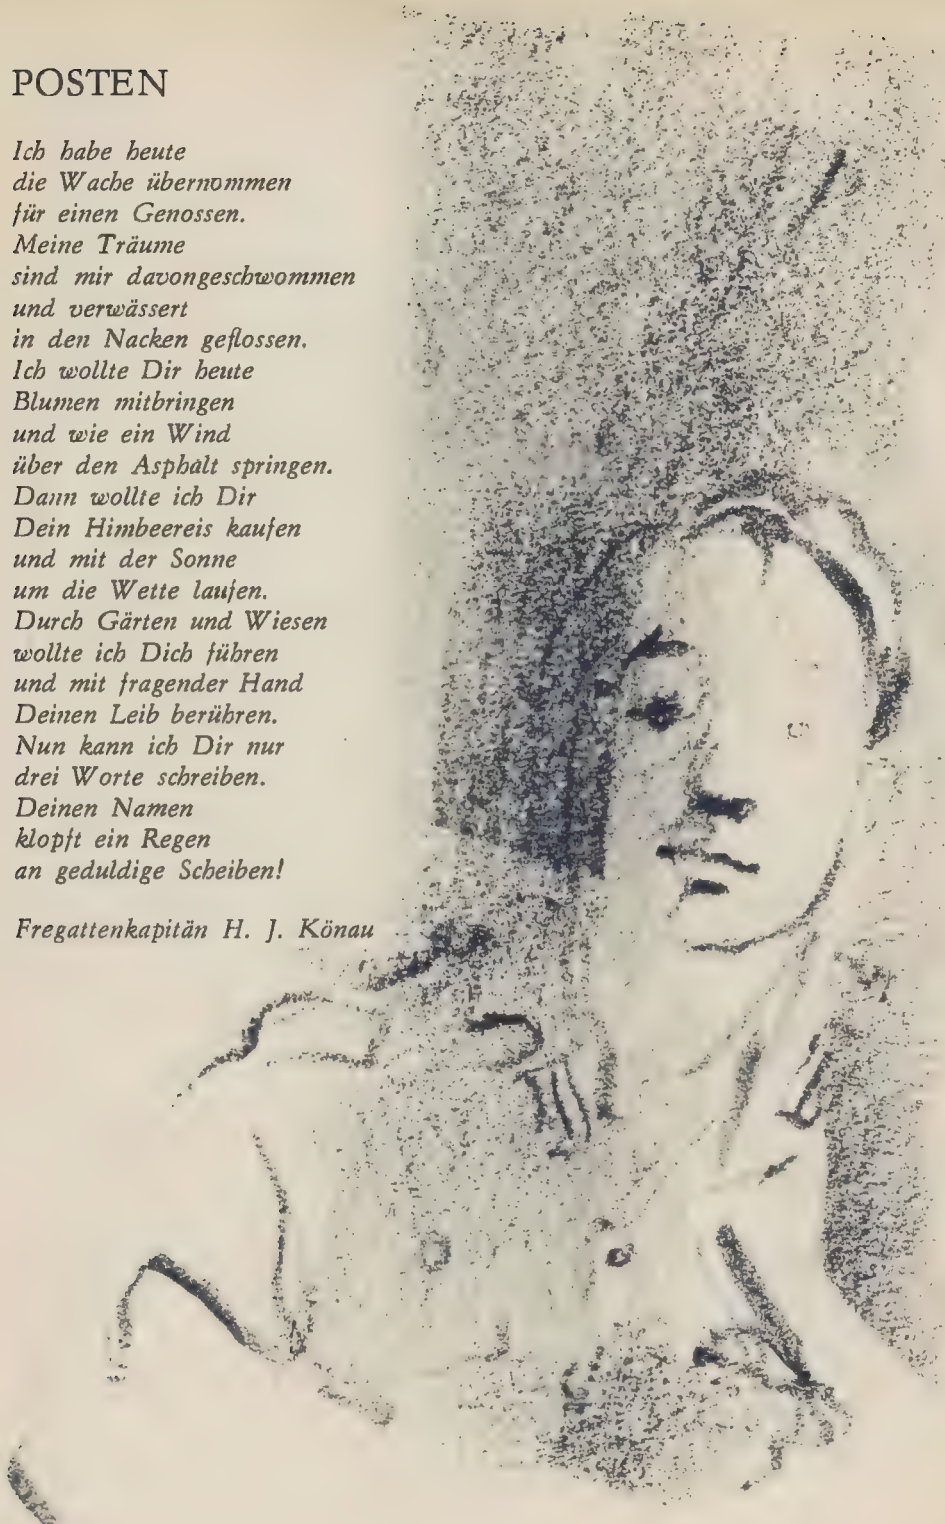 POSTEN
Ich habe heute
die Wache übernommen
für einen Genossen.
Meine Träume
sind mir davongeschwommen
und verwässert
in den Nacken geflossen.
Ich wollte Dir heute
Blumen mitbringen
und wie ein Wind
über den Asphalt springen.
Dann wollte ich Dir
Dein Himbeereis kaufen
und mit der Sonne
um die Wette laufen.
Durch Gärten und Wiesen
wollte ich Dich führen
und mit fragender Hand
Deinen Leib berühren.
Nun kann ich Dir nur
drei Worte schreiben.
Deinen Namen
klopft ein Regen
an geduldige Scheiben!
Fregattenkapitän H. J. Könau